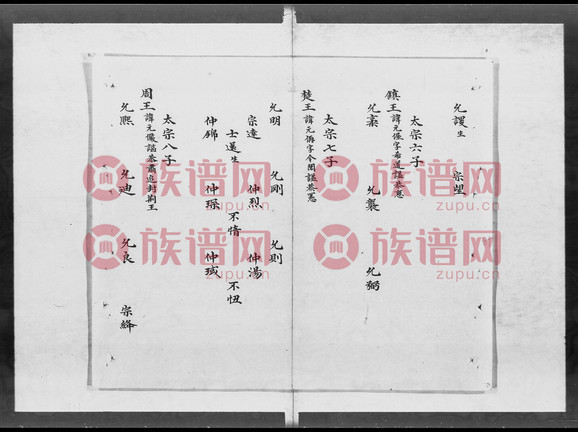 允謖生 宗望
太宗六子
鎮王諱元偓字希道諡恭懿
允素 允襲 允弼
太宗七子
楚王諱元偁字令聞諡恭憲
允明 允剛 允則
宗達 仲烈 仲湯
士蓬生 不惰 不忸
仲錦 仲琛 仲㺿
太宗八子
周王諱元儼諡恭肅追封荊王
允熙 允迪 允良 宗絳
族谱网
zupu.cn
族谱网
zupu.cn
族谱网
zupu.cn
族谱网
zupu.cn